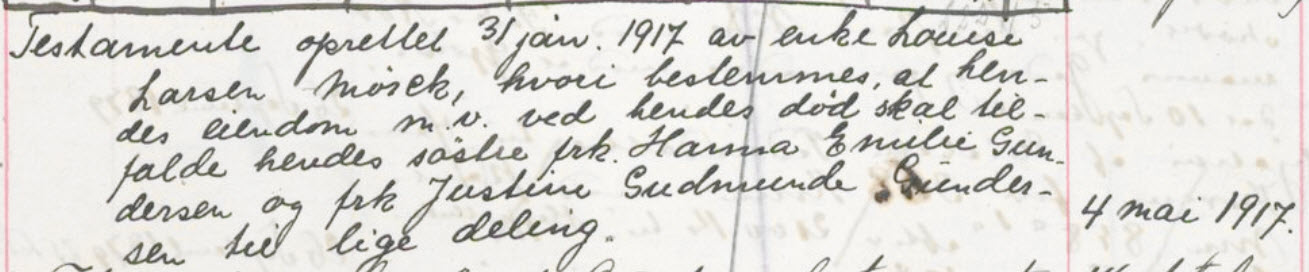 Testamente oprettet 31 jan. 1917 av enke Louise
Larsen Mörck, hvori bestemmes, at hen-
des eiendom m.v. ved hendes død skal til-
falde hendes søstre frk. Hanna Emilie Gun-
dersen og frk Justine Gudmunde Gunder-
sen til lige deling.
4 mai 1917.